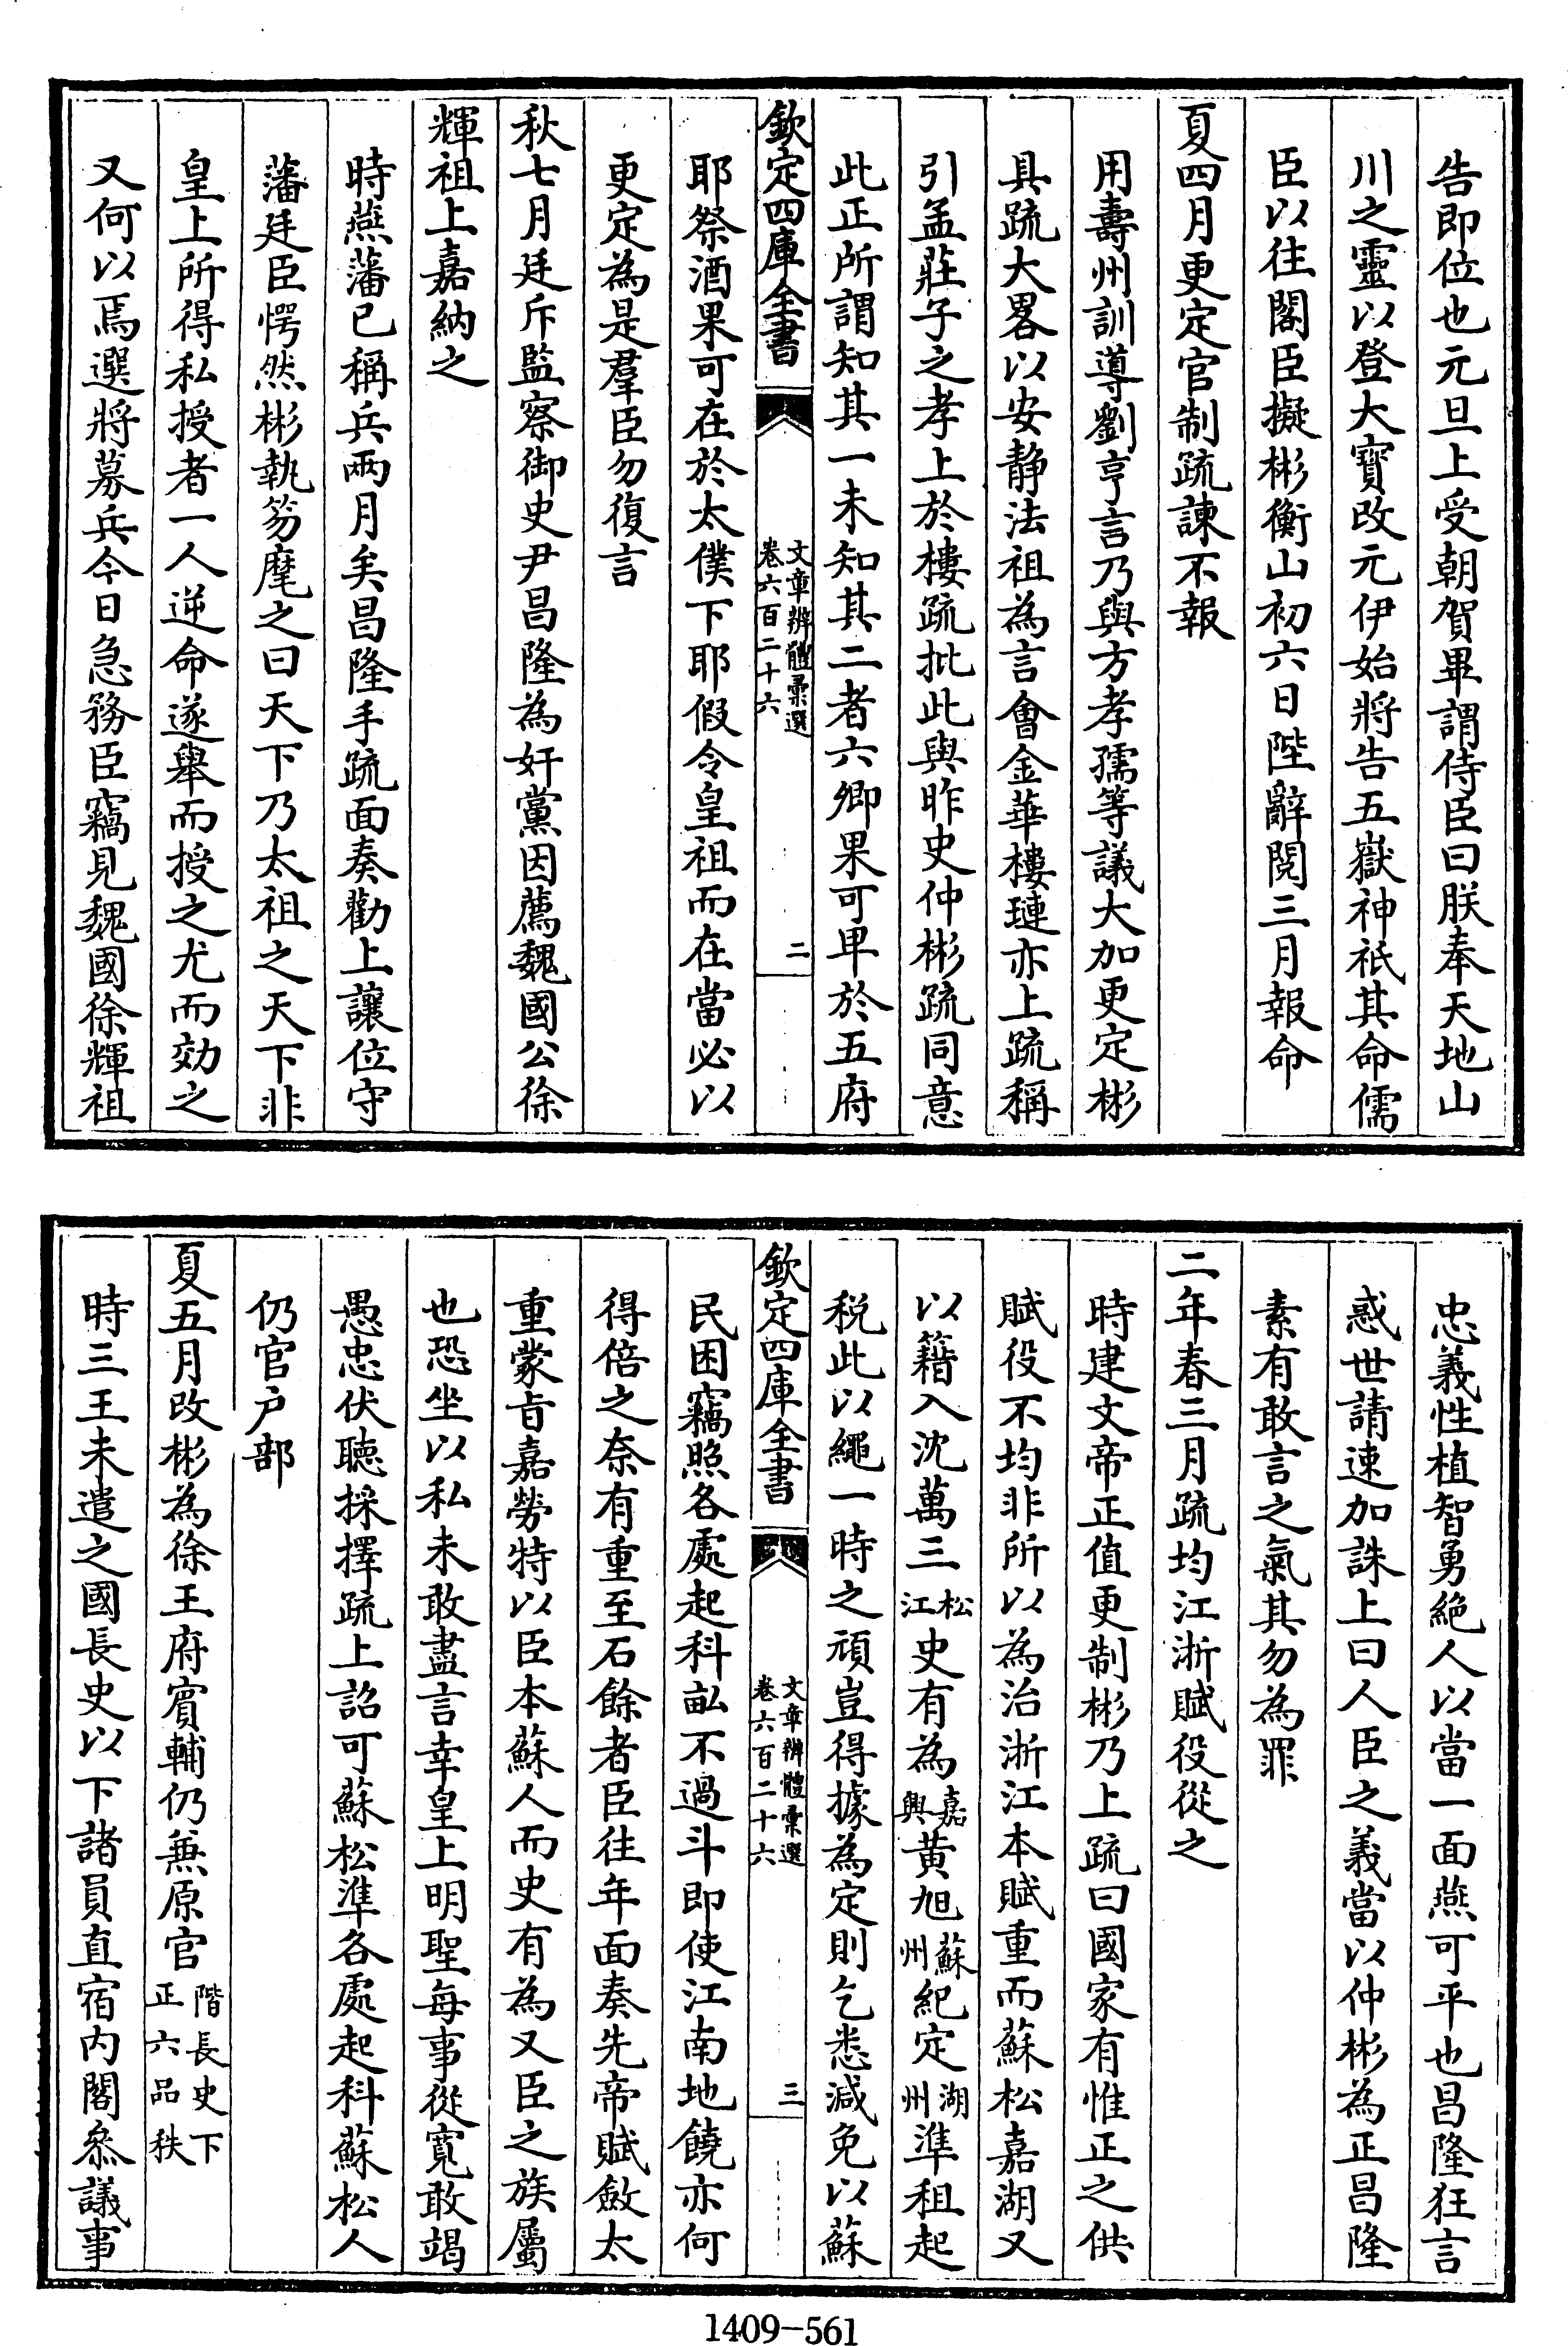 告即位也元旦上受朝賀畢謂侍臣曰朕奉天地山
川之靈以登大寶改元伊始將告五嶽神祇其命儒
臣以往閣臣擬彬衡山初六日陛辭閱三月報命
夏四月更定官制疏諫不報
用壽州訓導劉亨言乃與方孝孺等議大加更定彬
具疏大畧以安静法祖為言會金華樓璉亦上疏稱
引孟莊子之孝上於樓疏批此與昨史仲彬疏同意
此正所謂知其一未知其二者六卿果可卑於五府
欽定四庫全書
文章辨體彚選
卷六百二十六
二
耶祭酒果可在於太僕下耶假令皇祖而在當必以
更定為是羣臣勿復言
秋七月廷斥監察御史尹昌隆為奸黨因薦魏國公徐
輝祖上嘉納之
時燕藩已稱兵兩月矣昌隆手疏面奏勸上讓位守
藩廷臣愕然彬執笏麾之曰天下乃太祖之天下非
皇上所得私授者一人逆命遂舉而授之尤而効之
又何以焉選將募兵今日急務臣竊見魏國徐輝祖
忠義性植智勇絶人以當一面燕可平也昌隆狂言
惑世請速加誅上曰人臣之義當以仲彬為正昌隆
素有敢言之氣其勿為罪
二年春三月疏均江浙賦役從之
時建文帝正值更制彬乃上疏曰國家有惟正之供
賦役不均非所以為治浙江本賦重而蘇松嘉湖又
以籍入沈萬三松江史有為嘉興黄旭蘇州紀定湖州準租起
税此以繩一時之頑豈得據為定則乞悉減免以蘇
欽定四庫全書
文章辨體彚選
卷六百二十六
三
民困竊照各處起科畆不過斗即使江南地饒亦何
得倍之奈有重至石餘者臣往年面奏先帝賦斂太
重蒙旨嘉勞特以臣本蘇人而史有為又臣之族屬
也恐坐以私未敢盡言幸皇上明聖每事從寛敢竭
愚忠伏聽採擇疏上詔可蘇松準各處起科蘇松人
仍官户部
夏五月改彬為徐王府賓輔仍無原官階長史下正六品秩
時三王未遣之國長史以下諸員直宿内閣叅議事
1409-561